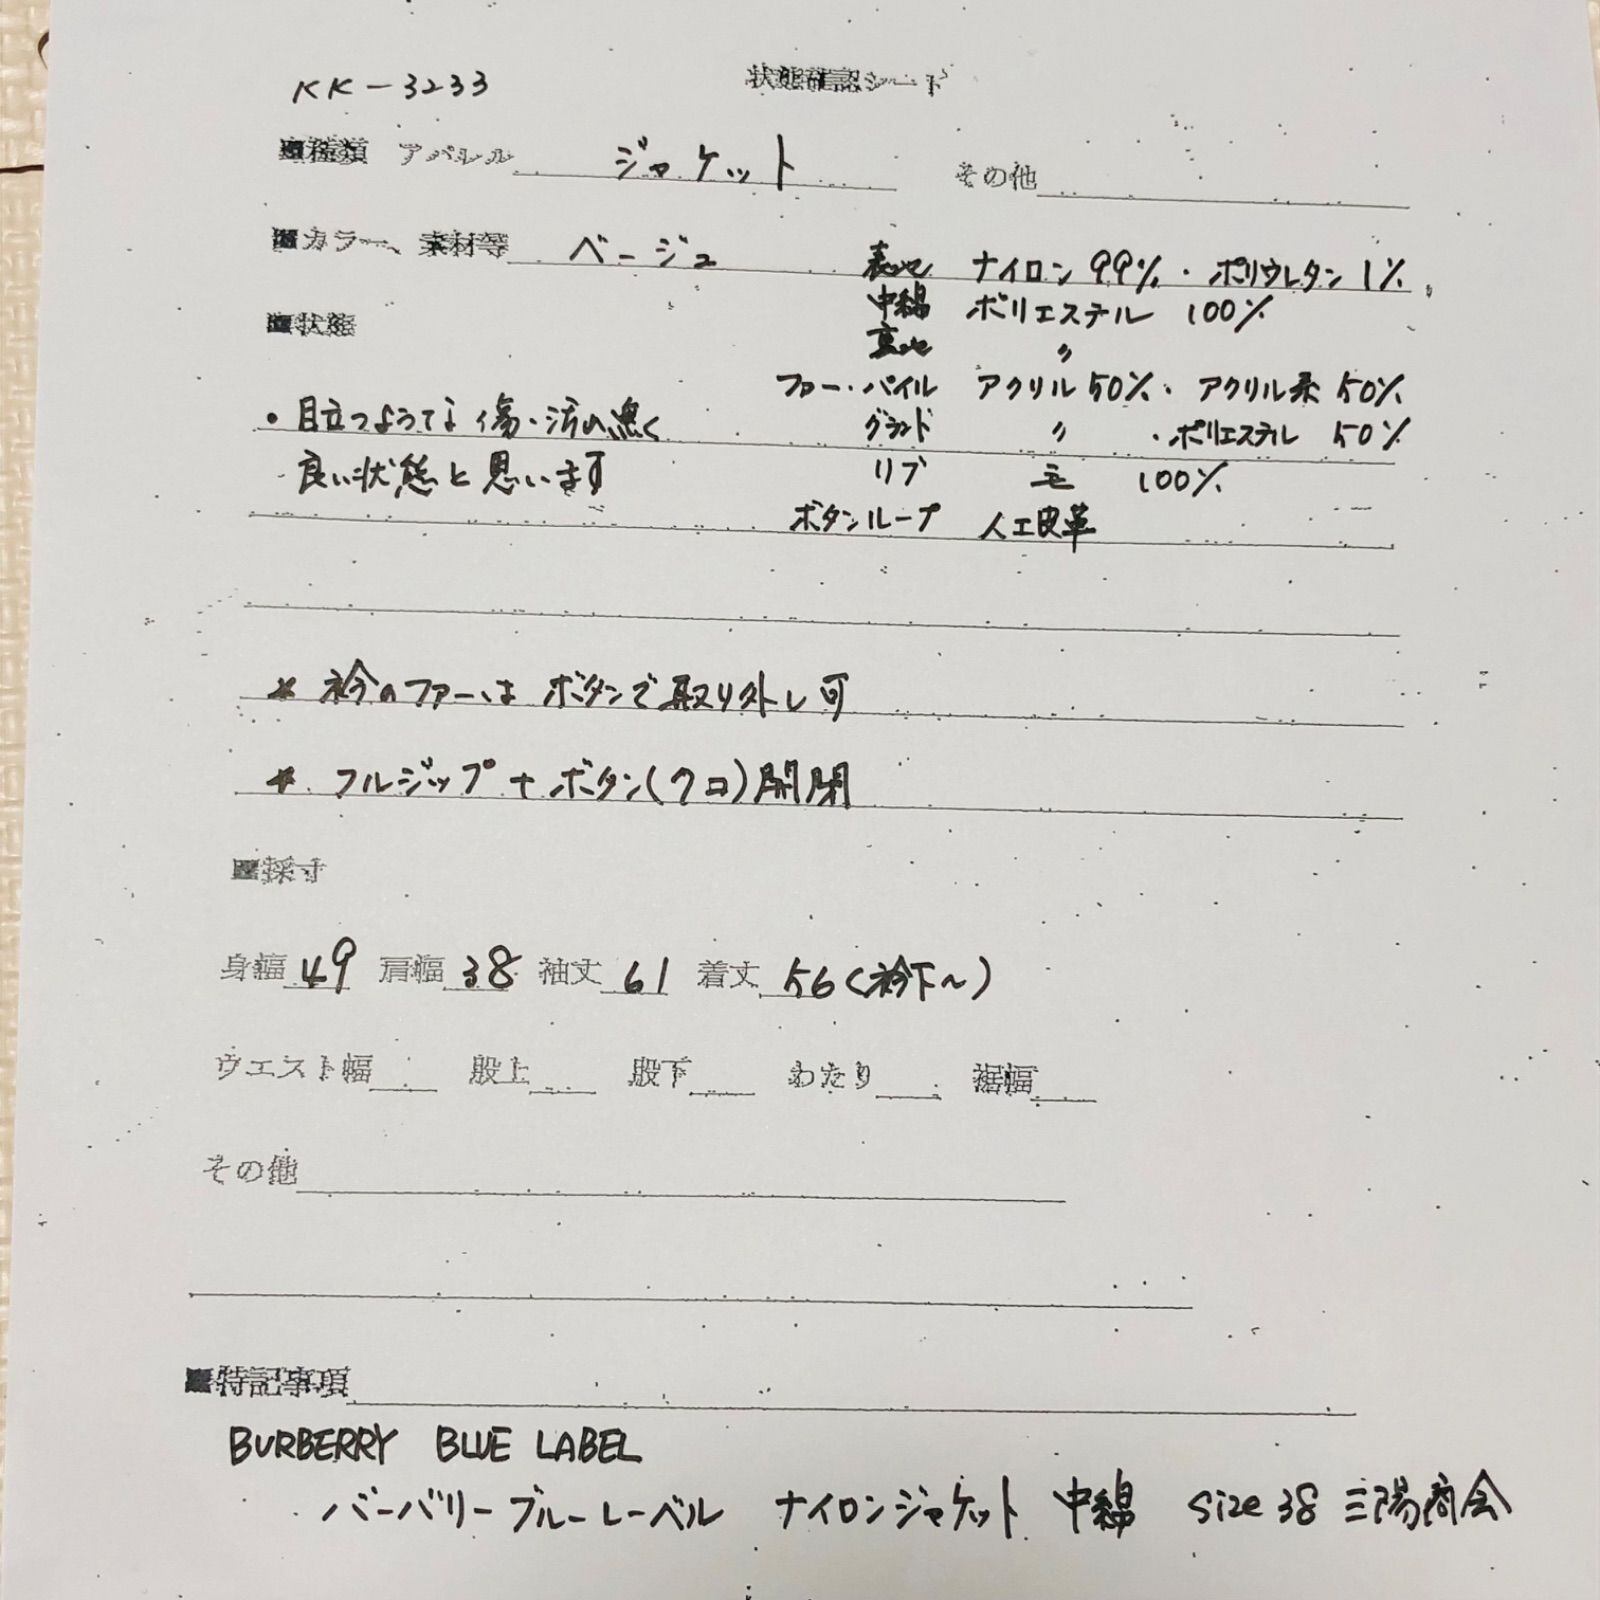 KK-3233
状態確認シート
■種類 アパレル ジャケット その他
■カラー、素材等 ベージュ 表地 ナイロン99%・ポリウレタン1%
中綿 ポリエステル 100%
■状態
裏地 〃
ファー・パイル アクリル50%・アクリル系50%
・目立つような傷・汚れ無く
グランド 〃 ・ポリエステル 50%
良い状態と思います
リブ 毛 100%
ボタンループ 人工皮革
* 衿のファーはボタンで取り外し可
* フルジップ+ボタン(7コ)開閉
■採寸
身幅49 肩幅38 袖丈61 着丈56(衿下~)
ウエスト幅 股上 股下 わたり 裾幅
その他
■特記事項
BURBERRY BLUE LABEL
バーバリーブルーレーベル ナイロンジャケット 中綿 size38 三陽商会